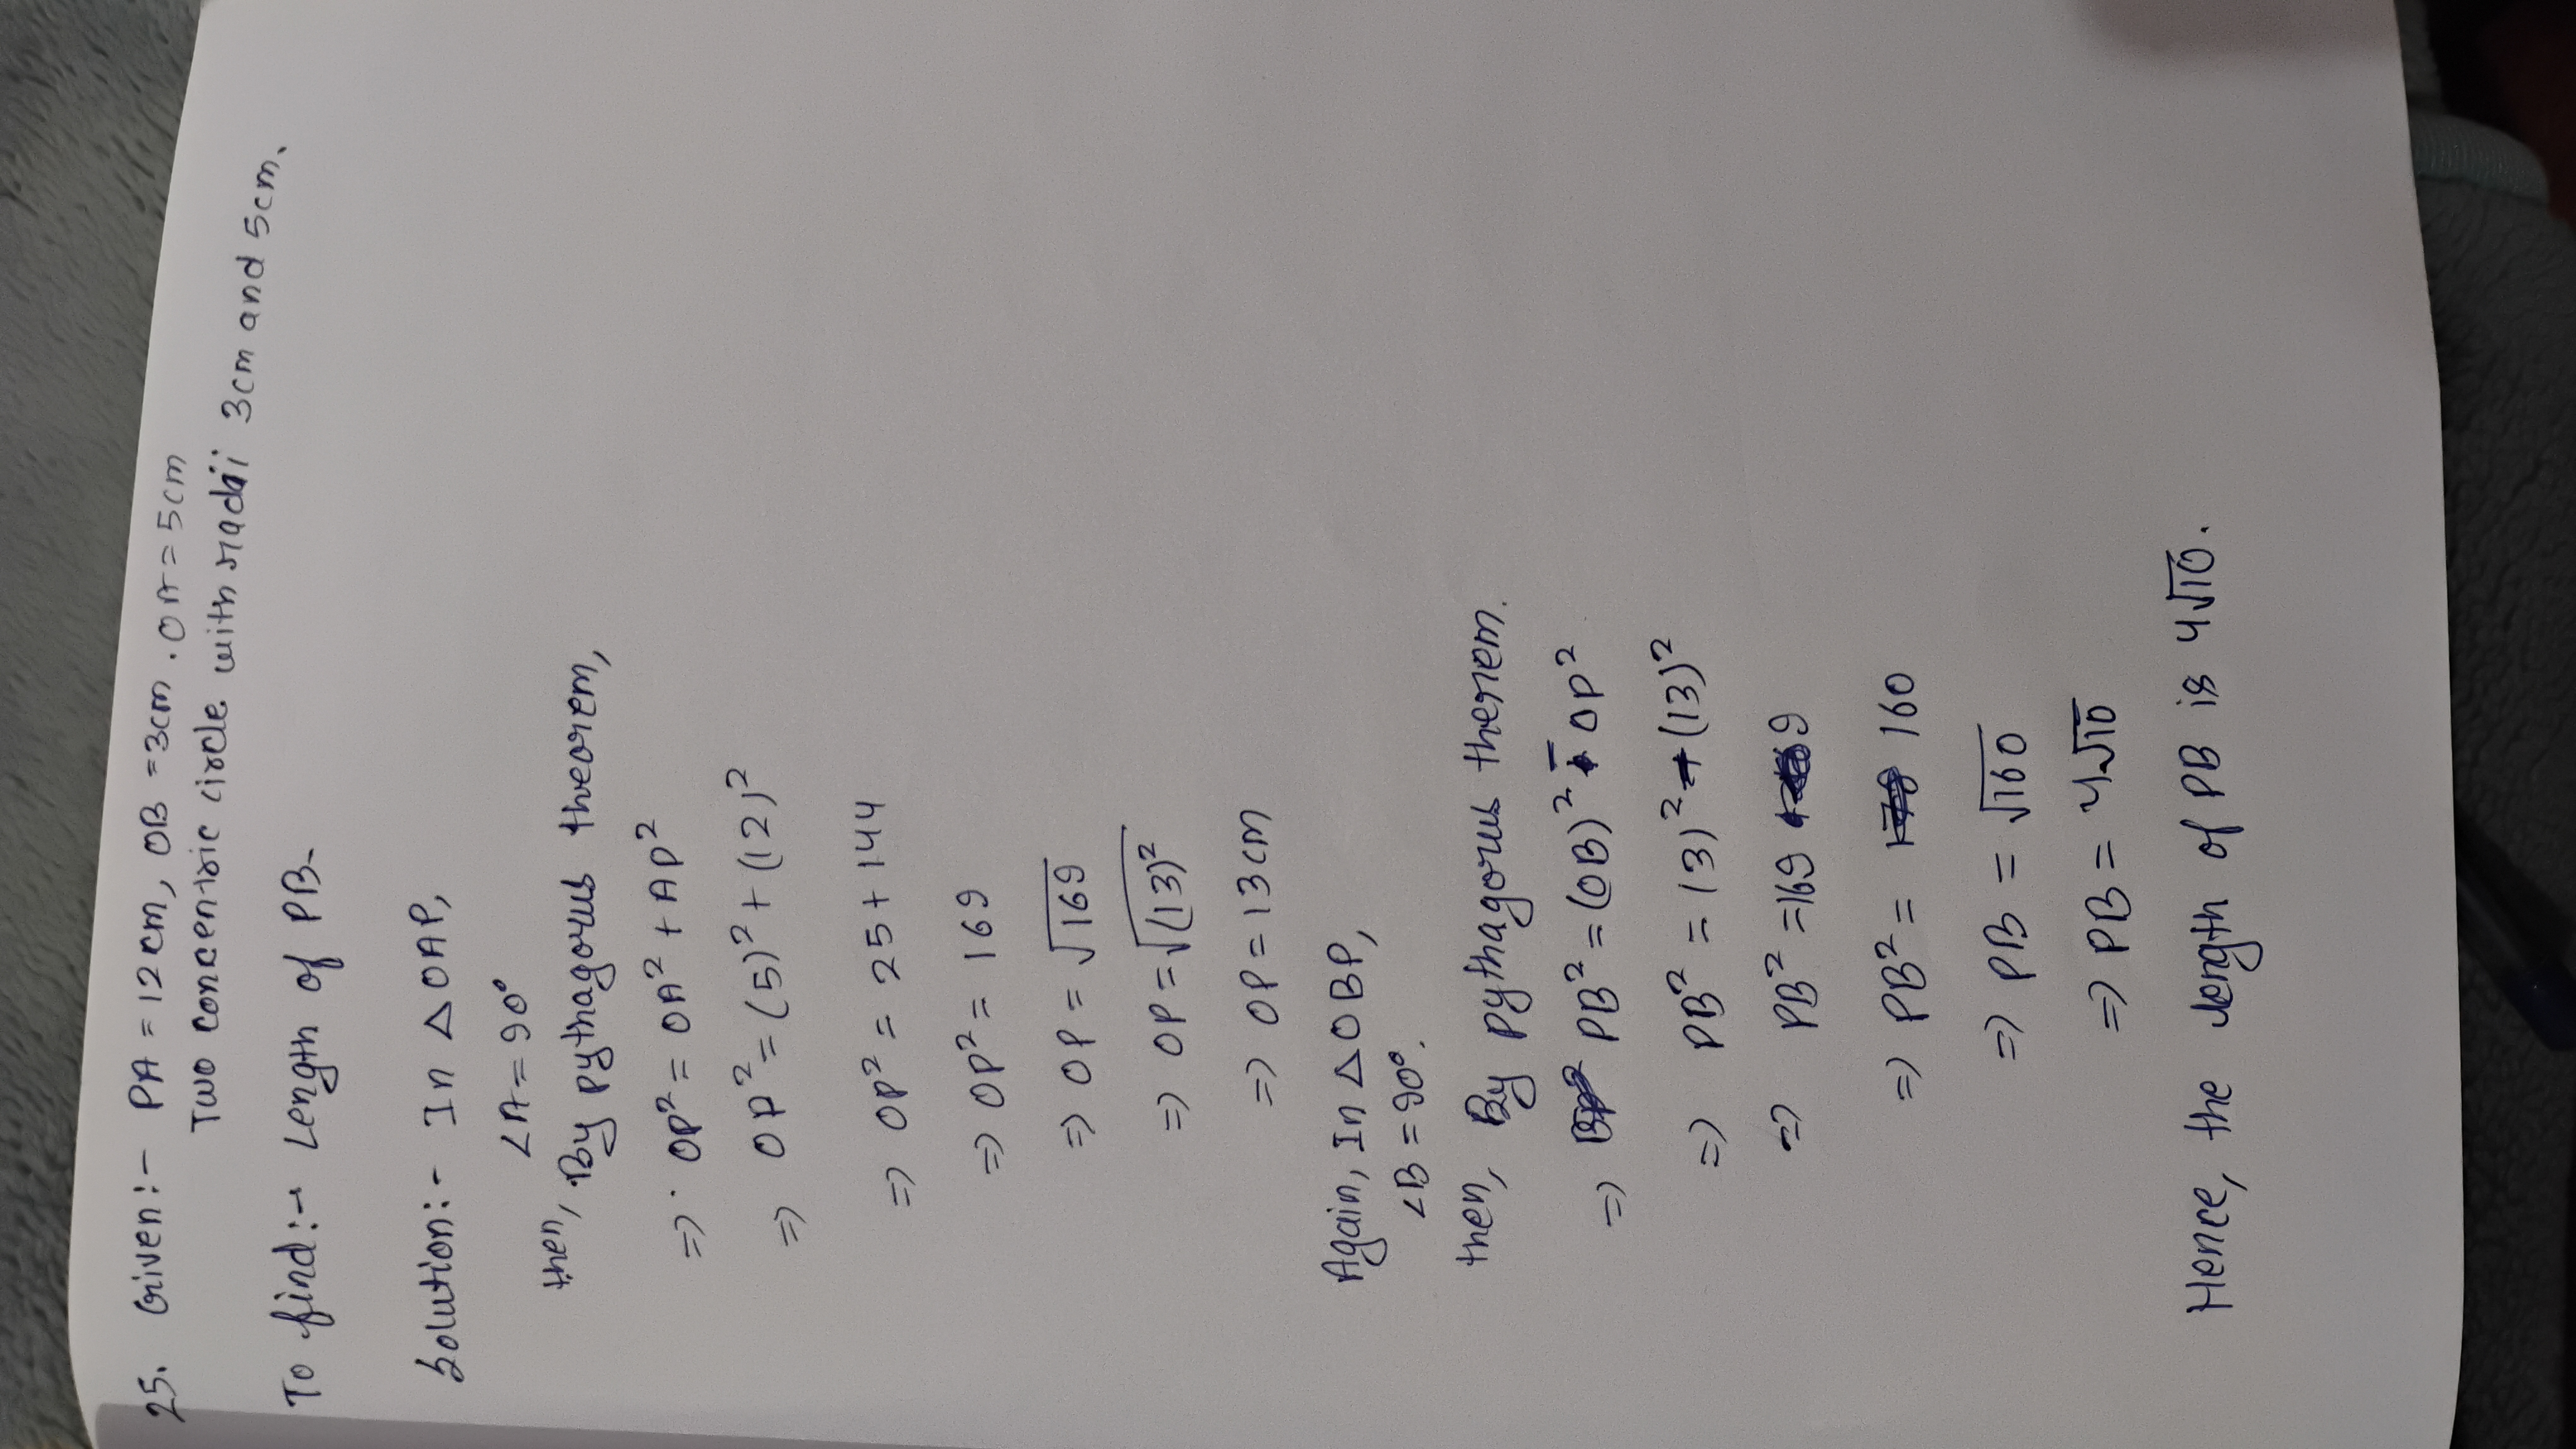 25. Given:- PA = 12cm, OB = 3cm. OA = 5cm
Two concentric circle with radii 3cm and 5cm.
To find:- Length of PB.
Solution:- In △OAP,
∠A = 90°
then, By pythagorus theorem,
=> OP² = OA² + AP²
=> OP² = (5)² + (12)²
=> OP² = 25 + 144
=> OP² = 169
=> OP = √169
=> OP = √(13)²
=> OP = 13cm
Again, In △OBP,
∠B = 90°.
then, By pythagorus therem.
=> PB² = (OB)² - OP²
=> PB² = (3)² + (13)²
=> PB² = 169 9
=> PB² = 160
=> PB = √160
=> PB = 4√10
Hence, the length of PB is 4√10.